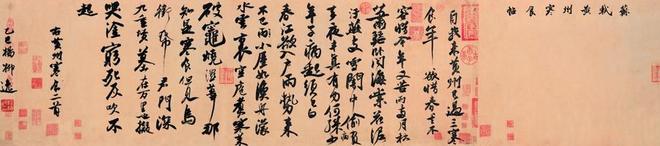 蘇軾黃州寒食帖
自我來黃州已過三寒
食年年欲惜春春去不
容惜今年又苦雨兩月秋
蕭瑟臥聞海棠花泥
汙燕支雪闇中偷負
去夜半真有力何殊少
年子病起須已白
春江欲入戶雨勢來
不已雨小屋如漁舟濛
水雲裏空庖煮寒菜
破竈燒濕葦那
知是寒食但見烏
銜帋君門深
九重墳墓在萬里也擬
哭塗窮死灰吹不
起
右黃州寒食二首
乙巳楊柳逸